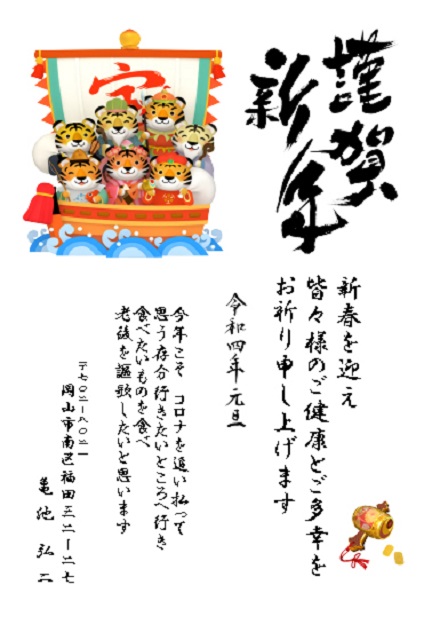 謹賀
新年
宝
新春を迎え
皆々様のご健康とご多幸を
お祈り申し上げます
令和四年元旦
今年こそ コロナを追い払って
思う存分行きたいところへ行き
食べたいものを食べ
老後を謳歌したいと思います
〒七〇二ー八〇二一
岡山市南区福田三二一ー二七
亀池 弘二